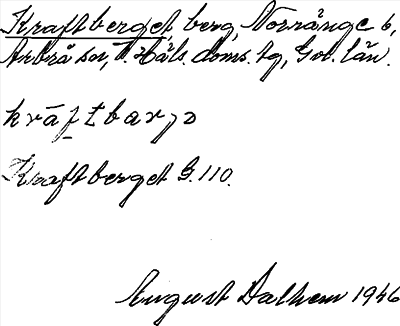 Kraftberget, berg, Norränge 6,
Arbrå sn, V. Häls. doms. tg, Gvl. län.
kráftbarjə
Kraftberget G. 110.
August Dalhem 1946